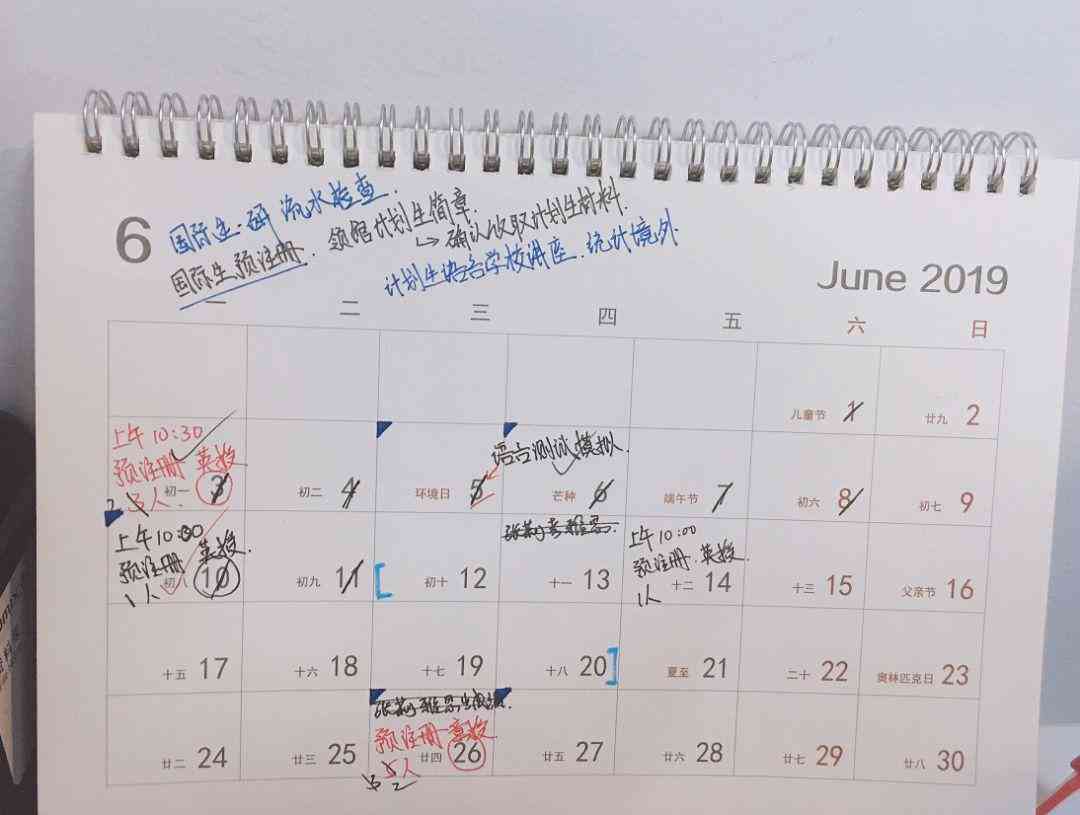 6
国际生·研 流水检查.
国际生预注册. 领馆计划生简章.
↳ 确认收取计划生材料.
计划生语言学校讲座. 统计境外
June 2019
一 二 三 四 五 六 日
儿童节 1 廿九 2
上午10:30
预注册 英授
人. 初一 3 初二 4 环境日 5 芒种 6 端午节 7 初六 8 初七 9
语言测试模拟.
上午10:00
预注册 英授.
1人 初八 10 初九 11 [ 初十 12 十一 13 十二 14 十三 15 父亲节 16
上午10:00
预注册. 英授.
1人
十五 17 十六 18 十七 19 十八 20 ] 夏至 21 二十 22 奥林匹克日 23
预注册
5人
廿二 24 廿三 25 廿四 26 廿五 27 廿六 28 廿七 29 廿八 30